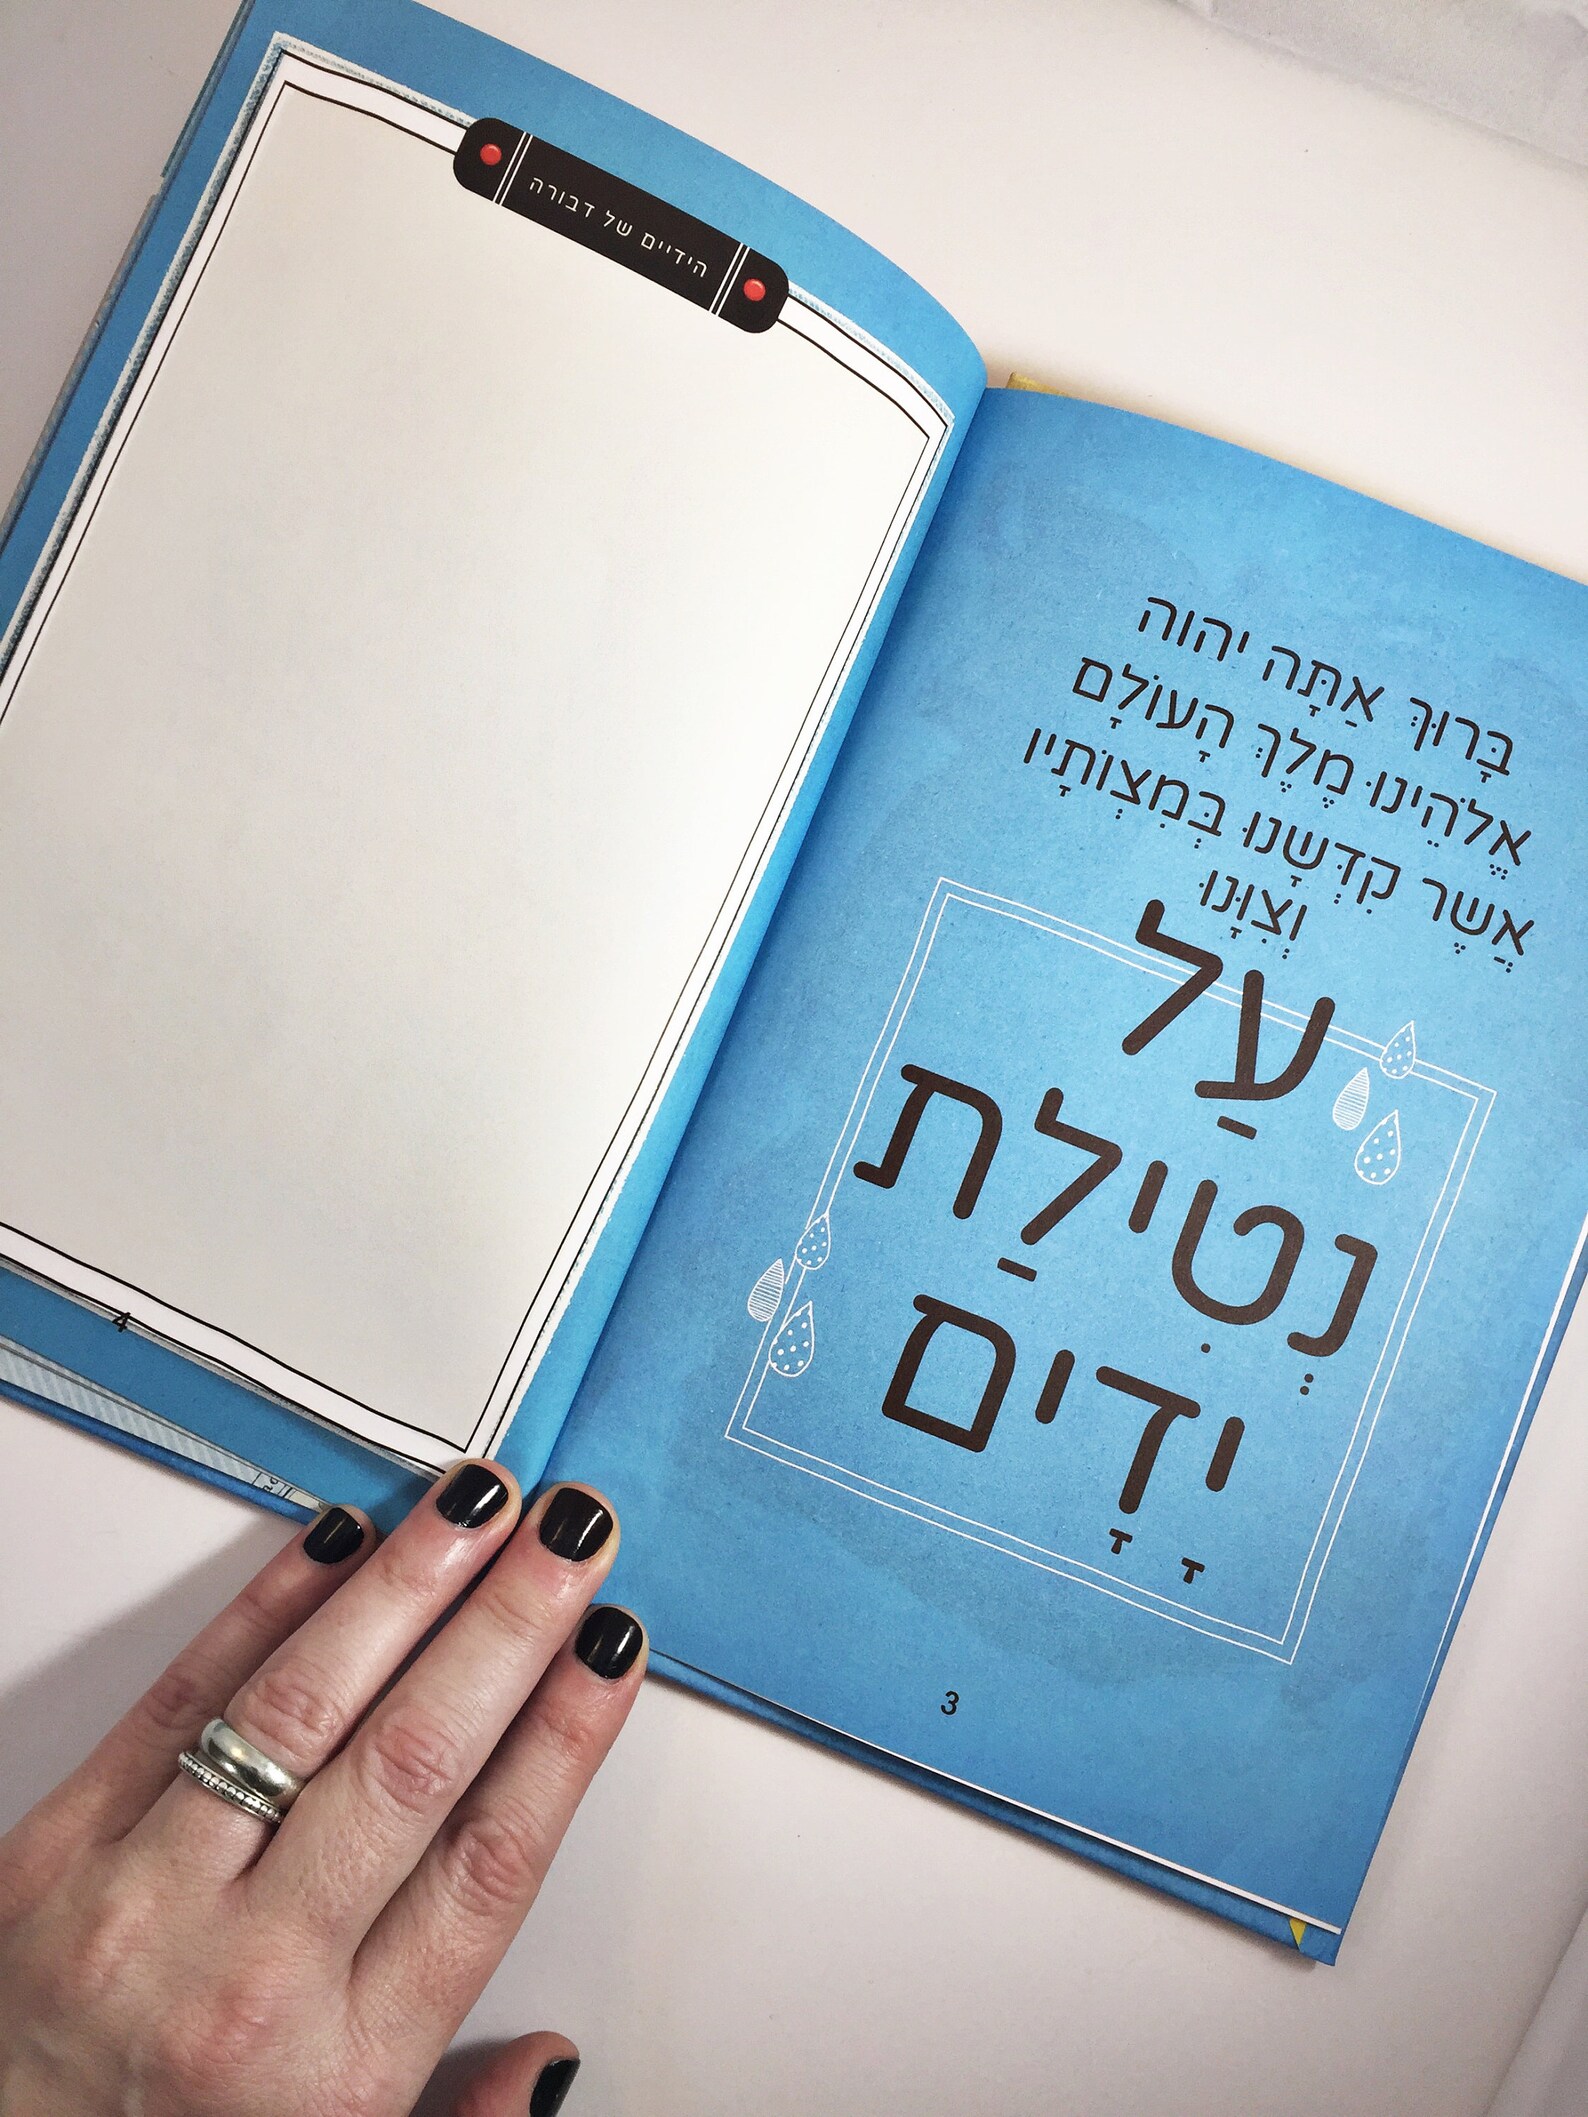 בָּרוּךְ אַתָּה יְהֹוָה
אֱלֹהֵינוּ מֶלֶךְ הָעוֹלָם
אֲשֶׁר קִדְּשָׁנוּ בְּמִצְוֹתָיו
וְצִוָּנוּ
עַל
נְטִילַת
יָדָיִם
3
הידיים של דבורה
4